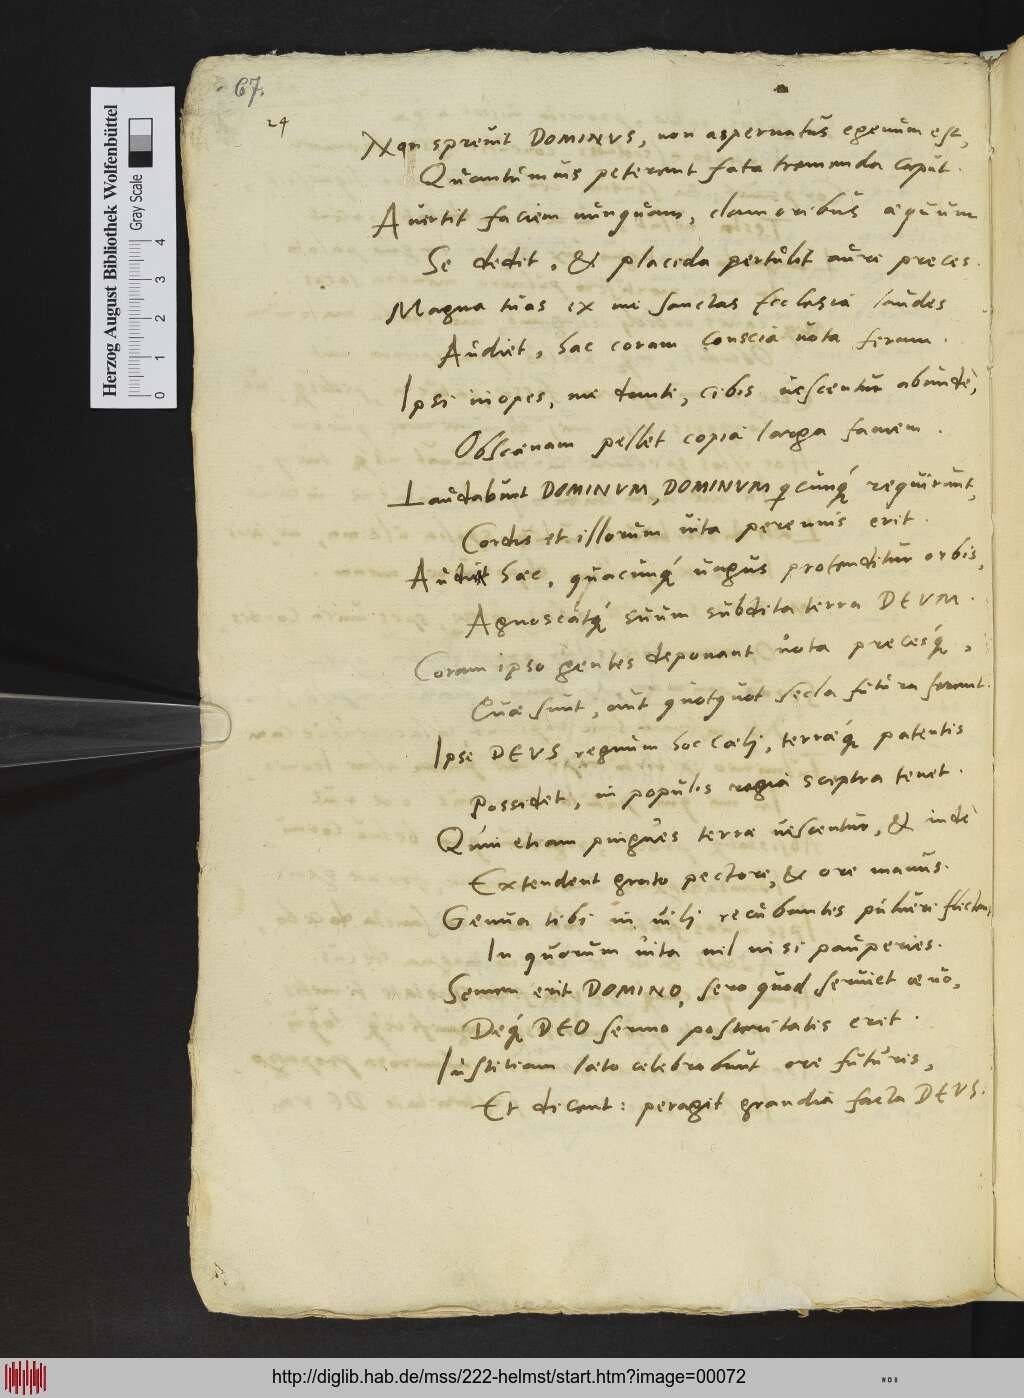 67.
24
Non sprevit DOMINUS, non aspernatus egenum est,
Quantumuis peterent fata tremenda caput.
Avertit faciem nunquam, clamoribus æquum
Se dedit, & placida pertulit aure preces.
Magna tuas ex me sanctas Ecclesia laudes
Audiet, hac coram conscia vota feram.
Ipsi inopes, me dante, cibis vescentur abunde,
Obscænam pellet copia larga famem.
Laudabunt DOMINVM, DOMINVM quicunq́ requirunt,
Cordis et illorum vita perennis erit.
Audiet hæc, quacunq́ vagus protenditur orbis,
Agnoscatq́ suum subdita terra DEVM.
Coram ipso gentes deponant vota precesq́,
Quæ sunt, aut quotquot secla futura ferent.
Ipse DEVS regnum hoc Cœlj, terræq́ patentis
Possidet, in populos regia sceptra tenet.
Quin etiam pingues terræ vescentur, & inde
Extendent grato pectore, & ore manus.
Genua tibi in vilj recubantes pulvere flectent,
In quorum vita nil nisi pauperies.
Semen erit DOMINO, sero quod serviet ævo,
Deq́ DEO sermo posteritatis erit.
Iustitiam læto celebrabunt ore futuris,
Et dicent: peragit grandia facta DEVS.
Herzog August Bibliothek Wolfenbüttel
Gray Scale
0 1 2 3 4
http://diglib.hab.de/mss/222-helmst/start.htm?image=00072